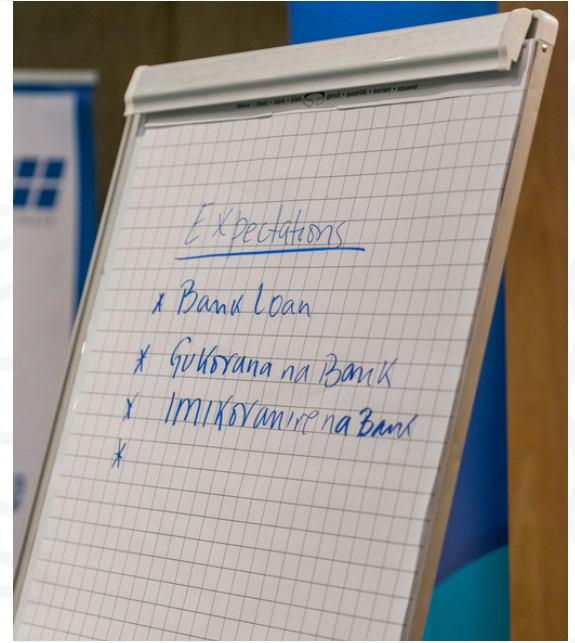 Expectations
* Bank loan
* Gukorana na Bank
* Imikoranire na Bank
*